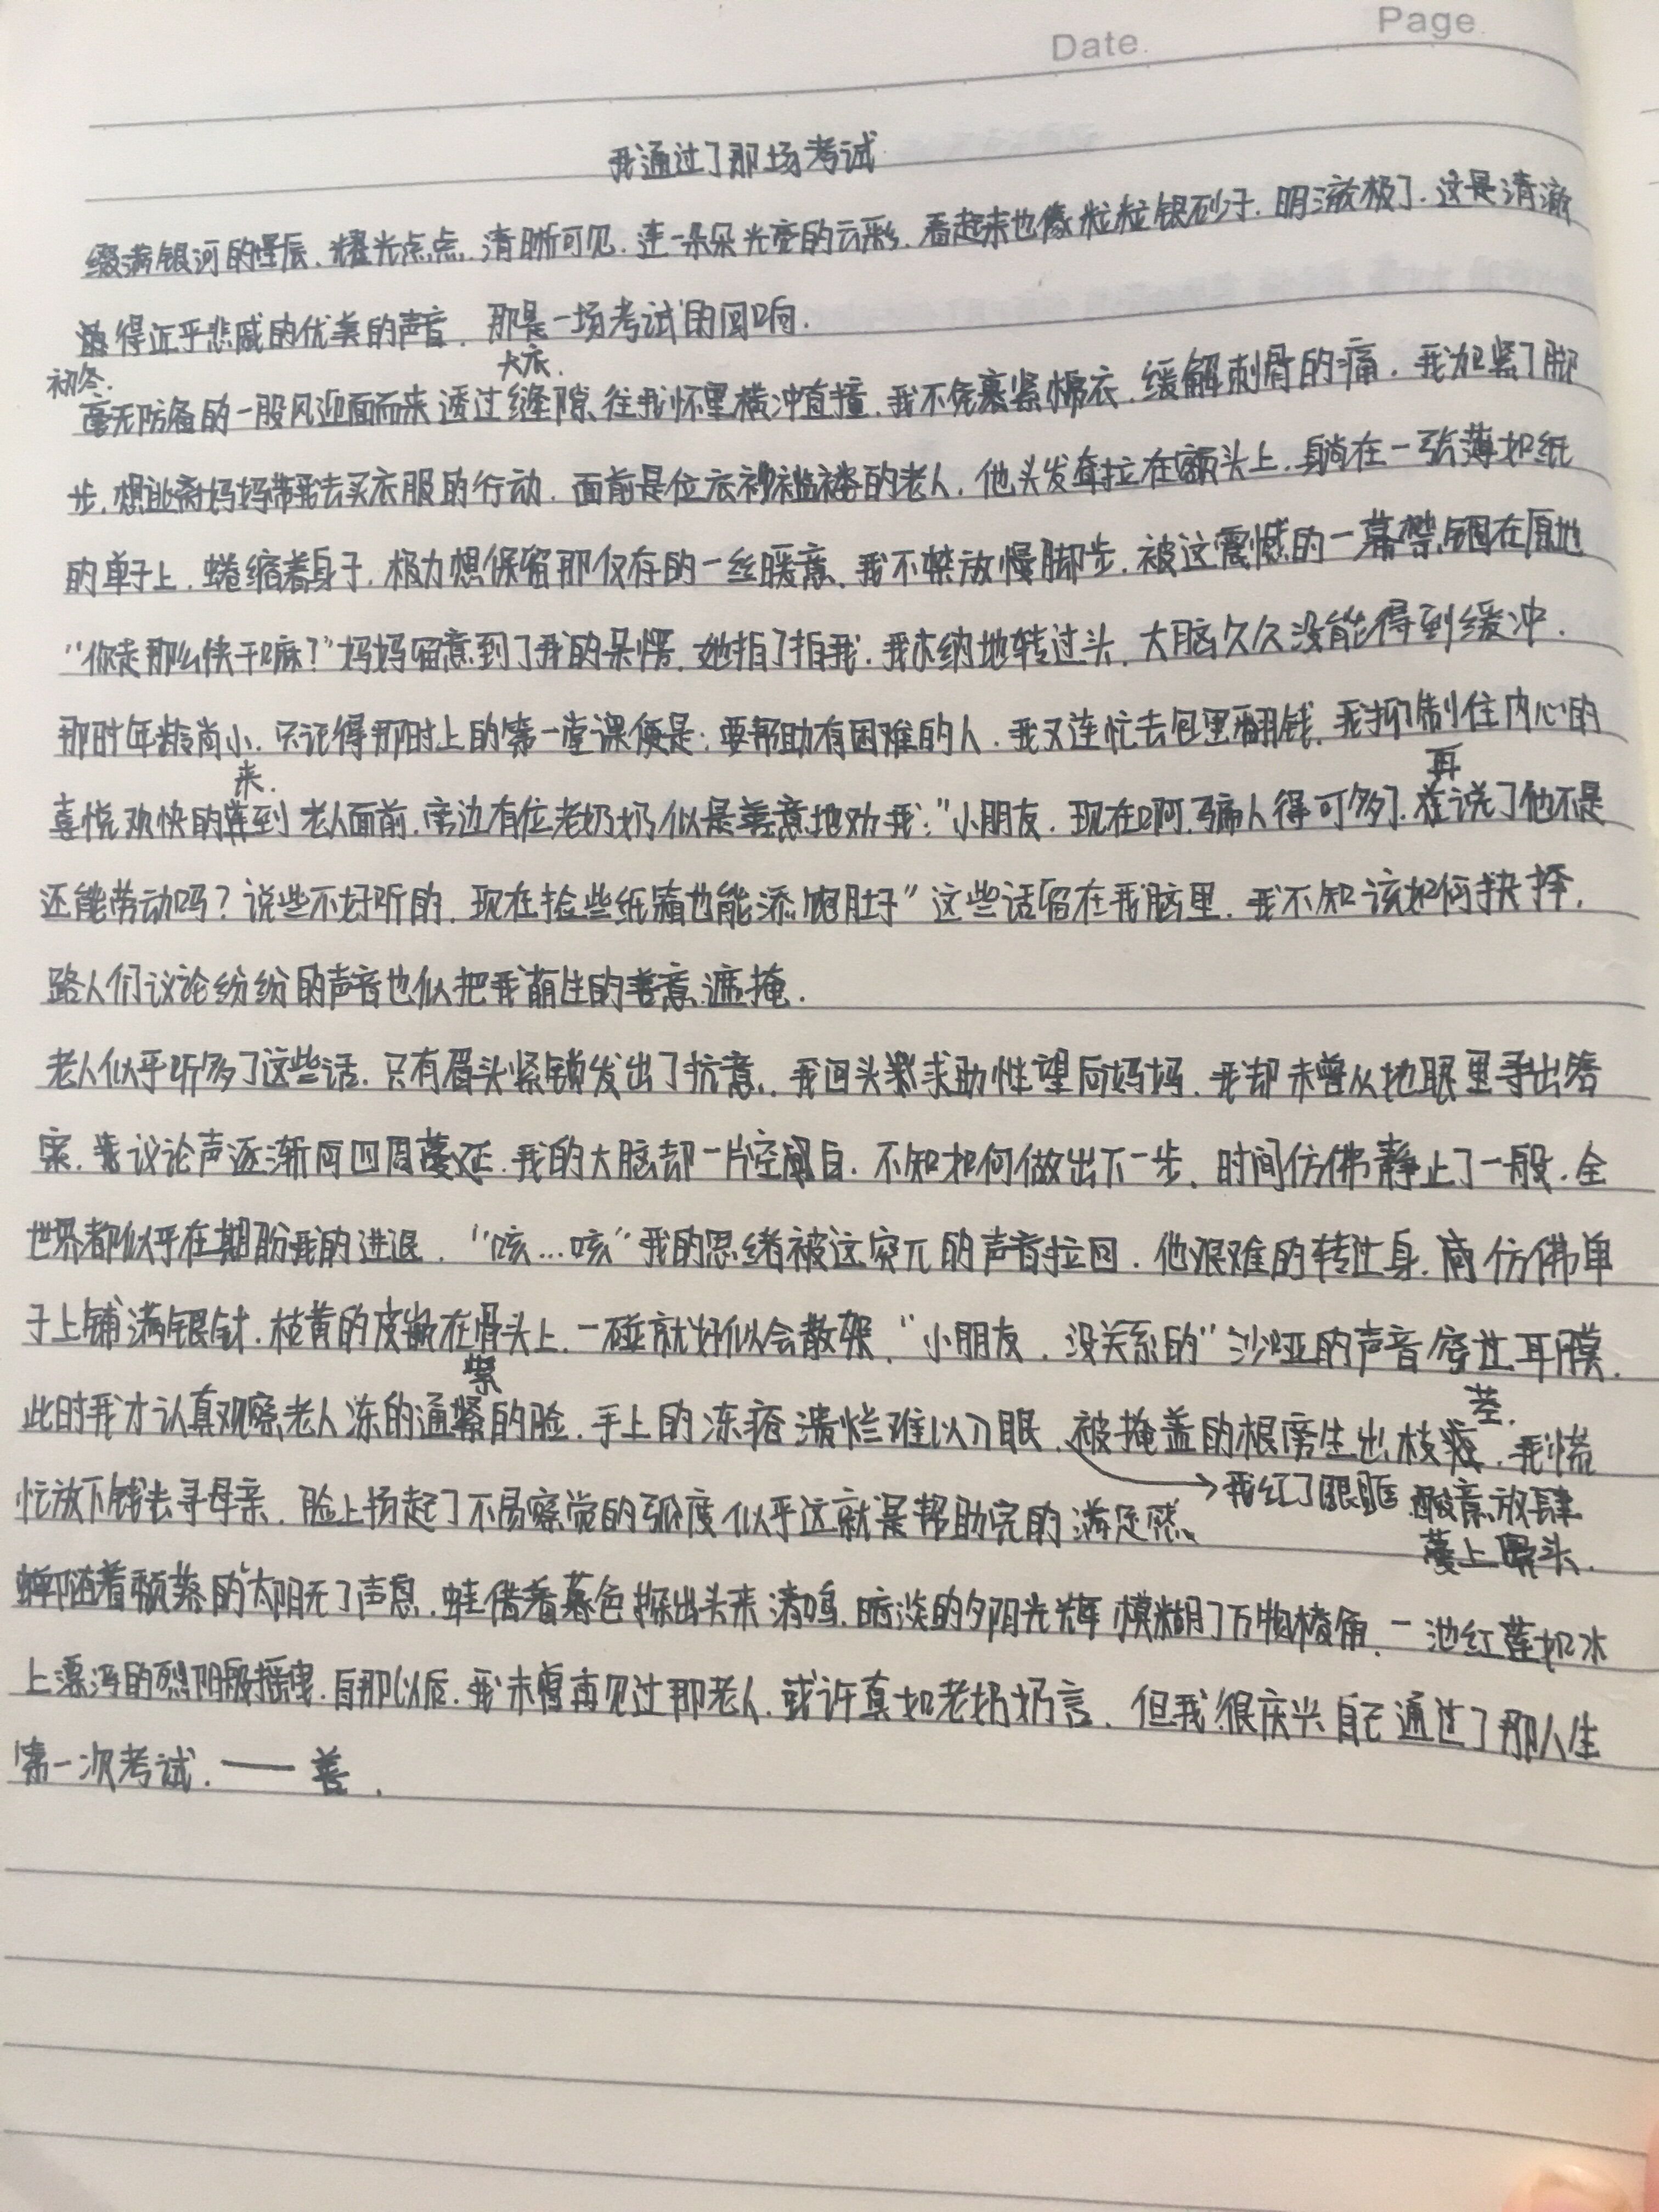 Date.
Page.
我通过了那场考试
缀满银河的星辰.耀光点点.清晰可见.连一朵朵光亮的云彩.看起来也像粒粒银砂子.明澈极了.这是清澈
得近乎悲戚的优美的声音.那是一场考试的回响.
初冬. 大衣.
毫无防备的一股风迎面而来透过缝隙往我怀里横冲直撞.我不凭裹紧棉衣.缓解刺骨的痛.我加紧了脚
步.想逃离妈妈带我去买衣服的行动.面前是位衣衫褴褛的老人.他头发耷拉在额头上.躺在一张薄如纸
的单子上.蜷缩着身子.极力想保留那仅存的一丝暖意.我不禁放慢脚步.被这震憾的一幕禁锢在原地
"你走那么快干嘛?"妈妈留意到了我的呆愣.她拍了拍我.我木纳地转过头.大脑久久没能得到缓冲.
那时年龄尚小.只记得那时上的第一堂课便是:要帮助有困难的人.我又连忙去包里翻钱.我抑制住内心的
来. 再
喜悦欢快的到老人面前.旁边有位老奶奶似是善意地劝我:"小朋友.现在啊.骗人得可多了.说了他不是
还能劳动吗?说些不好听的.现在捡些纸箱也能添饱肚子"这些话留在我脑里.我不知该如何抉择.
路人们议论纷纷的声音也似把我萌生的善意遮掩.
老人似乎听多了这些话.只有眉头紧锁发出了抗意.我回头求助性望向妈妈.我却未曾从她眼里寻出答
案.议论声逐渐向四周蔓延.我的大脑却一片空白.不知如何做出下一步.时间仿佛静止了一般.全
世界都似乎在期盼我的进退."咳...咳"我的思绪被这突兀的声音拉回.他艰难的转过身.仿佛单
子上铺满银针.枯黄的皮皱在骨头上.一碰就好似会散架."小朋友.没关系的"沙哑的声音穿过耳膜.
紫 茎.
此时我才认真观察老人冻的通的脸.手上的冻疮溃烂难以入眼.被掩盖的根旁生出枝.我慌
忙放下钱去寻母亲.脸上扬起了不易察觉的弧度似乎这就是帮助完的满足感.
→我红了眼眶.酸意放肆
蔓上鼻头.
蝉随着颓落的太阳无了声息.蛙借着暮色探出头来清鸣.暗淡的夕阳光辉模糊了万物棱角.一池红莲如水
上漂浮的烈阳般摇曳.自那以后.我未曾再见过那老人.或许真如老奶奶言.但我很庆兴自己通过了那人生
第一次考试.——善.